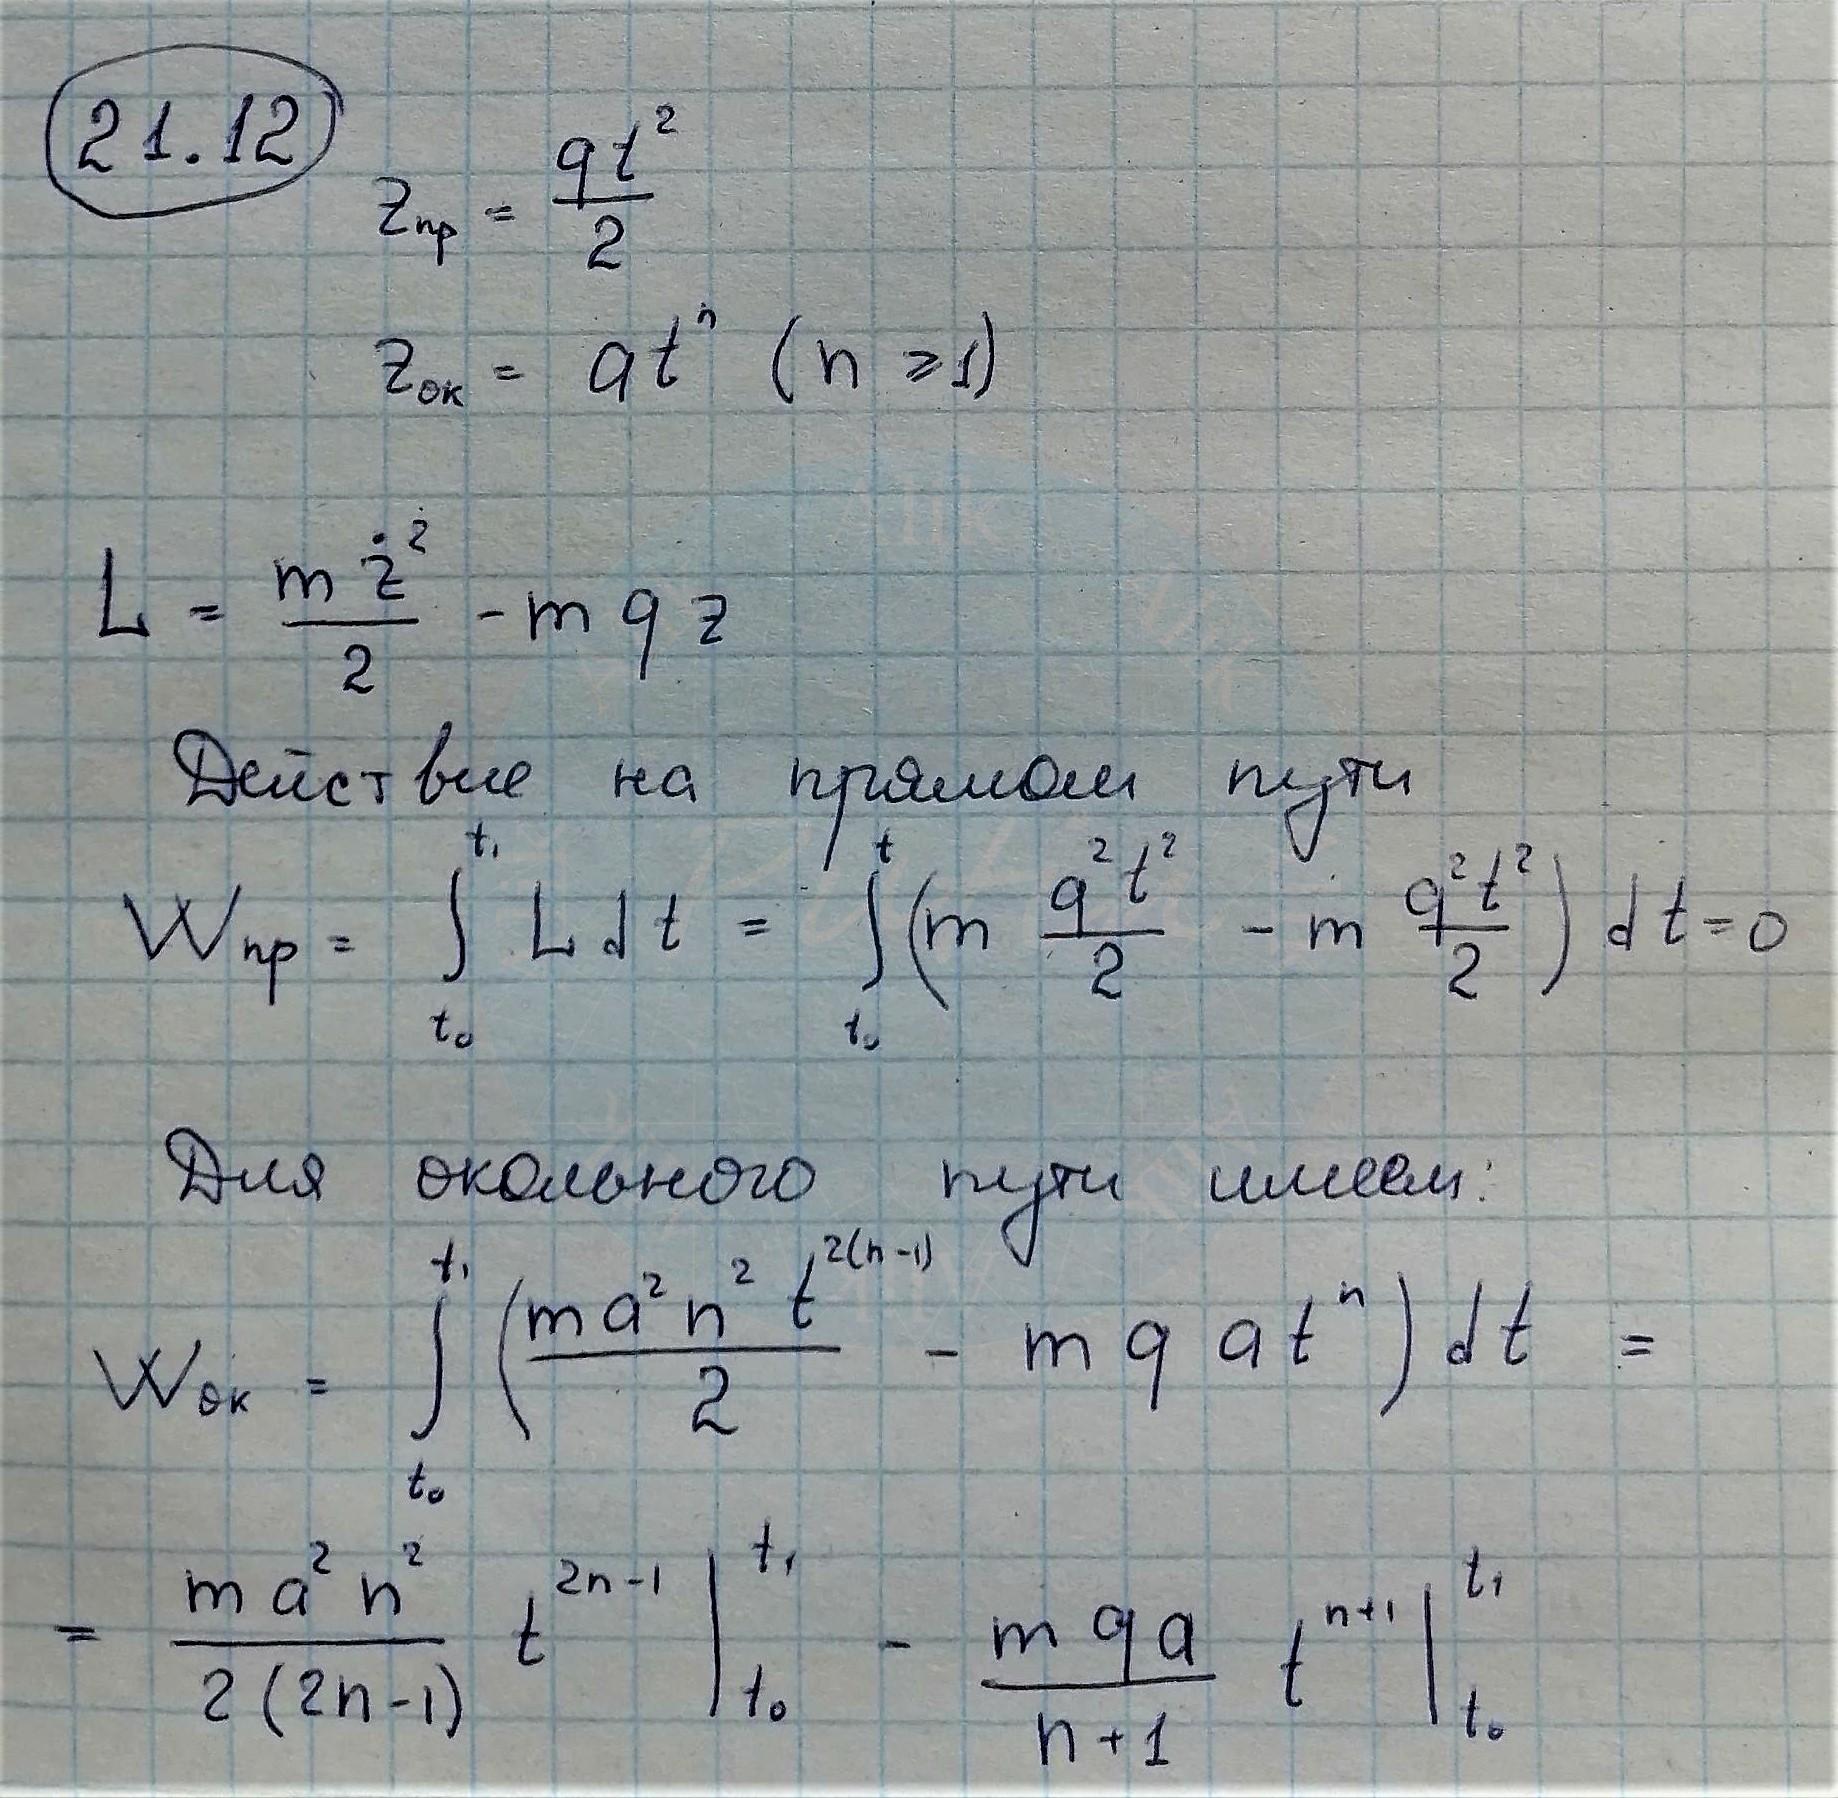 21.12
z_пр = gt²/2
z_ок = at^n (n ≥ 1)
L = mż²/2 - mgz
Действие на прямом пути
W_пр = ∫_{t₀}^{t₁} L dt = ∫_{t₀}^{t} (m g²t²/2 - m g²t²/2) dt = 0
Для окольного пути имеем:
W_ок = ∫_{t₀}^{t₁} (ma²n²t^{2(n-1)}/2 - mgat^n) dt =
= ma²n²/2(2n-1) t^{2n-1} |_{t₀}^{t₁} - mga/n+1 t^{n+1} |_{t₀}^{t₁}